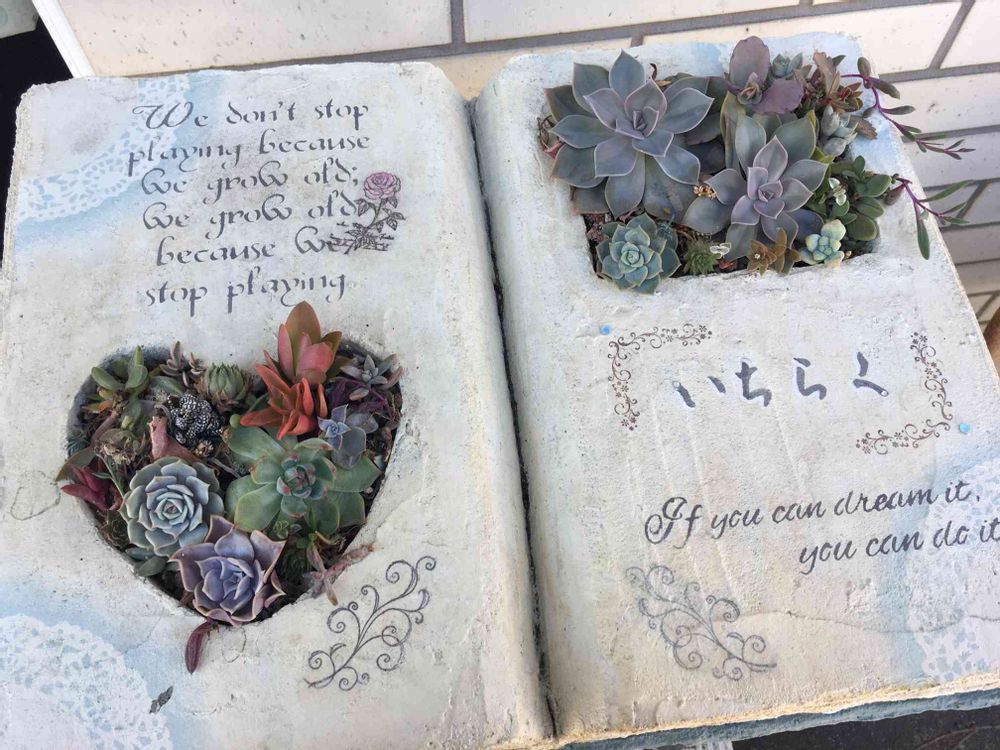 We don't stop
playing because
we grow old;
we grow old
because we
stop playing
いちらく
If you can dream it,
you can do it